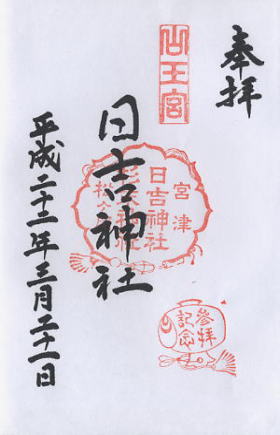 奉拝
山王宮
日吉神社
宮津
日吉神社
参拝
記念
平成二十二年三月二十一日